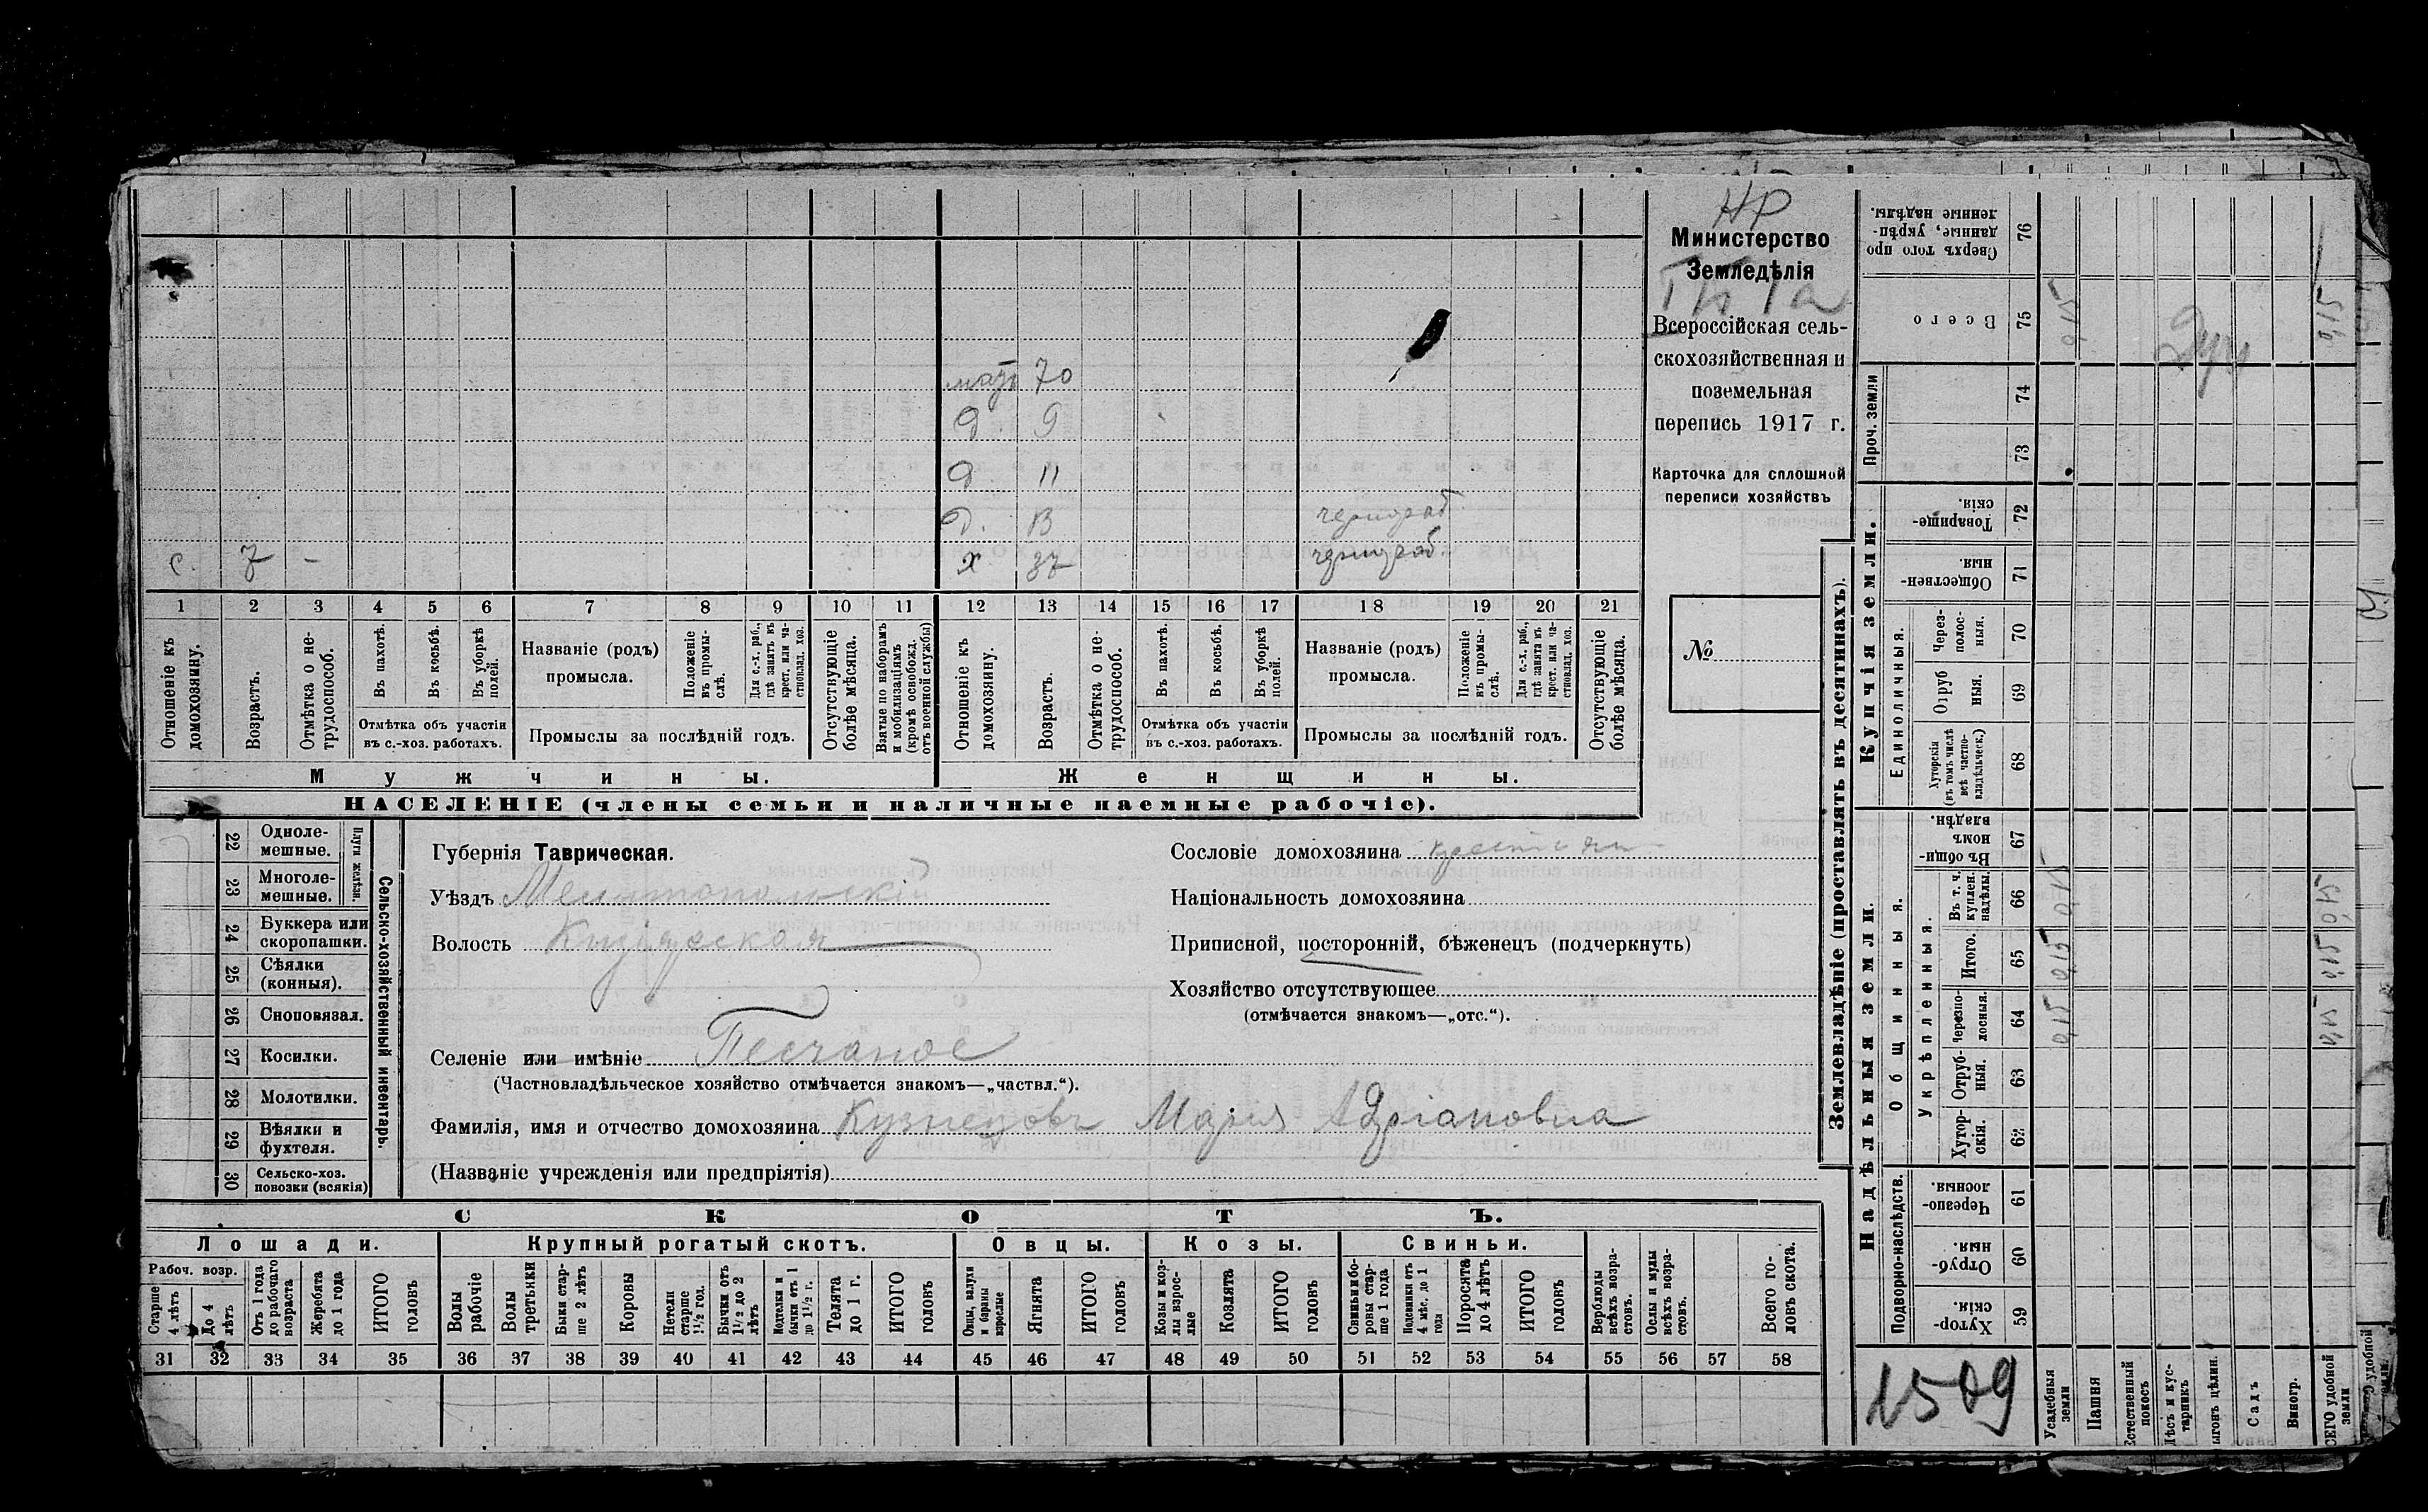 НР
Министерство
Земледѣлія
Всероссійская сель-
скохозяйственная и
поземельная
перепись 1917 г.
Карточка для сплошной
переписи хозяйствъ
№
мать 70
д. 9
д. 11
д. 13 чернораб
с. 7 – х 37 чернораб.
1 2 3 4 5 6 7 8 9 10 11 12 13 14 15 16 17 18 19 20 21
Отношеніе къ домохозяину.
Возрастъ.
Отмѣтка о не-трудоспособ.
Въ пахотѣ.
Въ косьбѣ.
Въ уборкѣ полей.
Отмѣтка объ участіи
въ с.-хоз. работахъ.
Названіе (родъ)
промысла.
Положеніе въ промы-слѣ.
Для с.-х. раб., гдѣ занятъ въ крест. или ча-стновлад. хоз.
Промыслы за послѣдній годъ.
Отсутствующіе болѣе мѣсяца.
Взятые по наборамъ и мобилизаціямъ (кромѣ освобожд. отъ военной службы)
Отношеніе къ домохозяину.
Возрастъ.
Отмѣтка о не-трудоспособ.
Въ пахотѣ.
Въ косьбѣ.
Въ уборкѣ полей.
Отмѣтка объ участіи
въ с.-хоз. работахъ.
Названіе (родъ)
промысла.
Положеніе въ промы-слѣ.
Для с.-х. раб., гдѣ занята въ крест. или ча-стновлад. хоз.
Промыслы за послѣдній годъ.
Отсутствующіе болѣе мѣсяца.
Мужчины. Женщины.
НАСЕЛЕНІЕ (члены семьи и наличные наемные рабочіе).
Сельско-хозяйственный инвентарь.
Плуги желѣзн.
22 Одноле-мешные.
23 Многоле-мешные.
24 Буккера или скоропашки.
25 Сѣялки (конныя).
26 Сноповязал.
27 Косилки.
28 Молотилки.
29 Вѣялки и фухтеля.
30 Сельско-хоз. повозки (всякія)
Губернія Таврическая.
Уѣздъ Мелитопольскій
Волость
Селеніе или имѣніе Песчаное
(Частновладѣльческое хозяйство отмѣчается знакомъ—„частвл.“).
Фамилія, имя и отчество домохозяина Кузнецовъ Марія Адріановна
(Названіе учрежденія или предпріятія)
Сословіе домохозяина
Національность домохозяина
Приписной, посторонній, бѣженецъ (подчеркнуть)
Хозяйство отсутствующее
(отмѣчается знакомъ—„отс.“).
СКОТЪ.
Лошади. Крупный рогатый скотъ. Овцы. Козы. Свиньи.
Рабоч. возр.
Старше 4 лѣтъ
До 4 лѣтъ
Отъ 1 года до рабочаго возраста
Жеребята до 1 года
ИТОГО головъ
Волы рабочіе
Волы третьяки
Быки стар-ше 2 лѣтъ
Коровы
Нетели старше 1½ год.
Бычки отъ 1½ до 2 лѣтъ
Подтелки и бычки отъ 1 до 1½ г.
Телята до 1 г.
ИТОГО головъ
Овцы, валухи и бараны взрослые
Ягнята
ИТОГО головъ
Козы и коз-лы взрос-лые
Козлята
ИТОГО головъ
Свиньи и бо-ровы стар-ше 1 года
Подсвинки отъ 4 мѣс. до 1 года
Поросята до 4 лѣтъ
ИТОГО головъ
Верблюды всѣхъ возра-стовъ.
Ослы и мулы всѣхъ возра-стовъ.
Всего го-ловъ скота.
31 32 33 34 35 36 37 38 39 40 41 42 43 44 45 46 47 48 49 50 51 52 53 54 55 56 57 58
Землевладѣніе (проставлять въ десятинахъ).
Сверхъ того про данные, укрѣп-ленные надѣлы. 76
Всего 75
Проч. земли
74
73
Купчія земли.
Товарище-скія. 72
Обществен-ныя. 71
Единоличныя.
Через-полос-ныя. 70
Отруб ныя. 69
Хуторскія (въ томъ числѣ всѣ частно-владѣльческ.) 68
Надѣльныя земли.
Общинныя.
Въ общи-номъ владѣн. 67
Укрѣпленныя.
Въ т. ч. куплен. надѣлы. 66
Итого. 65
Черезпо-лосныя. 64
Отруб-ныя. 63
Хутор-скія. 62
Подворно-наслѣдств.
Черезпо-лосныя. 61
Отруб-ныя. 60
Хутор-скія. 59
1509
Усадебныя земли
Пашня
Естественный покосъ
Лѣсъ и кус-тарникъ
Выгонъ цѣлин.
Садъ
Виногр.
ВСЕГО удобной земли